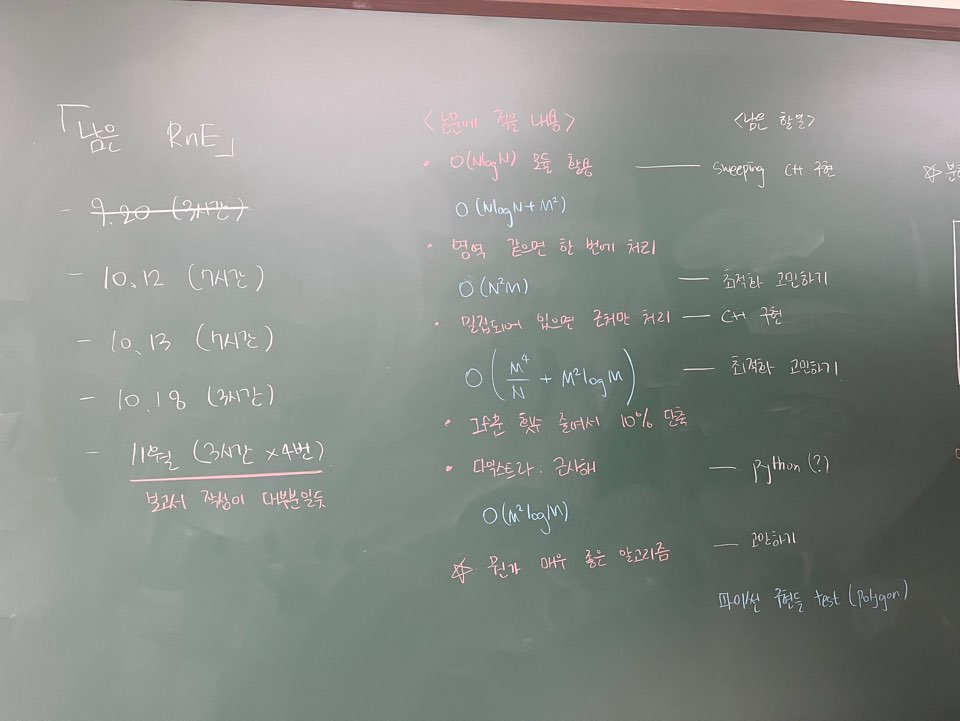 「남은 RnE」
- 9.20 (3시간)
- 10.12 (7시간)
- 10.13 (7시간)
- 10.18 (3시간)
- 11월 (3시간 × 4번)
보고서 작성이 대부분일듯
<논문에 적을 내용>
• O(NlogN) 모듈 활용
O(NlogN + M²)
• 영역 같으면 한 번에 처리
O(N²M)
• 밀집되어 있으면 근처만 처리
O(M⁴/N + M²logM)
• 횟수 줄여서 10% 단축
• 다익스트라 : 근사해
O(M²logM)
☆ 뭔가 매우 좋은 알고리즘
<남은 할 일>
— sweeping C++ 구현
— 최적화 고민하기
— C++ 구현
— 최적화 고민하기
— python(?)
— 고민하기
파이썬 구현들 test (polygon)